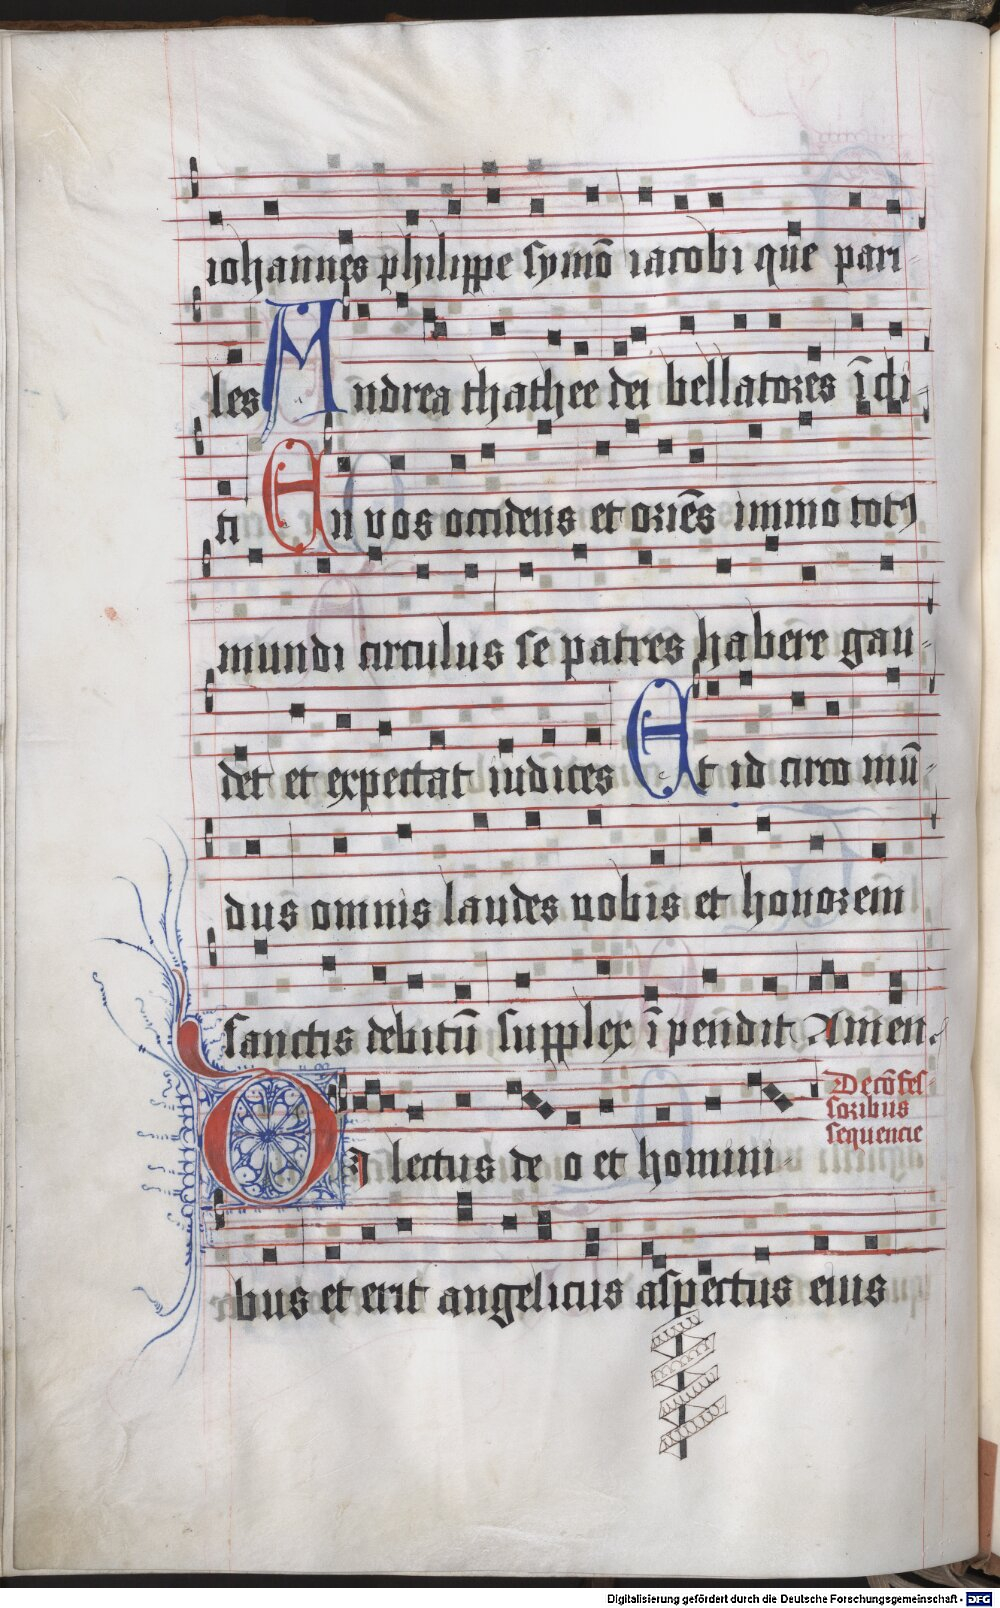 iohannes philippe symō iacobi que pari
les Andrea thathee dei bellatores īcli
ti En vos occidens et oriēs immo tot9
mundi circulus se patres habere gau
det et expectat iudices Et id circo mū
dus omnis laudes vobis et honorem
sanctis debitū supplex īpendit Amen.
De cōfes
soribus
sequencie
Dilectus deo et homini
bus et erit angelicus aspectus eius
Digitalisierung gefördert durch die Deutsche Forschungsgemeinschaft - DFG